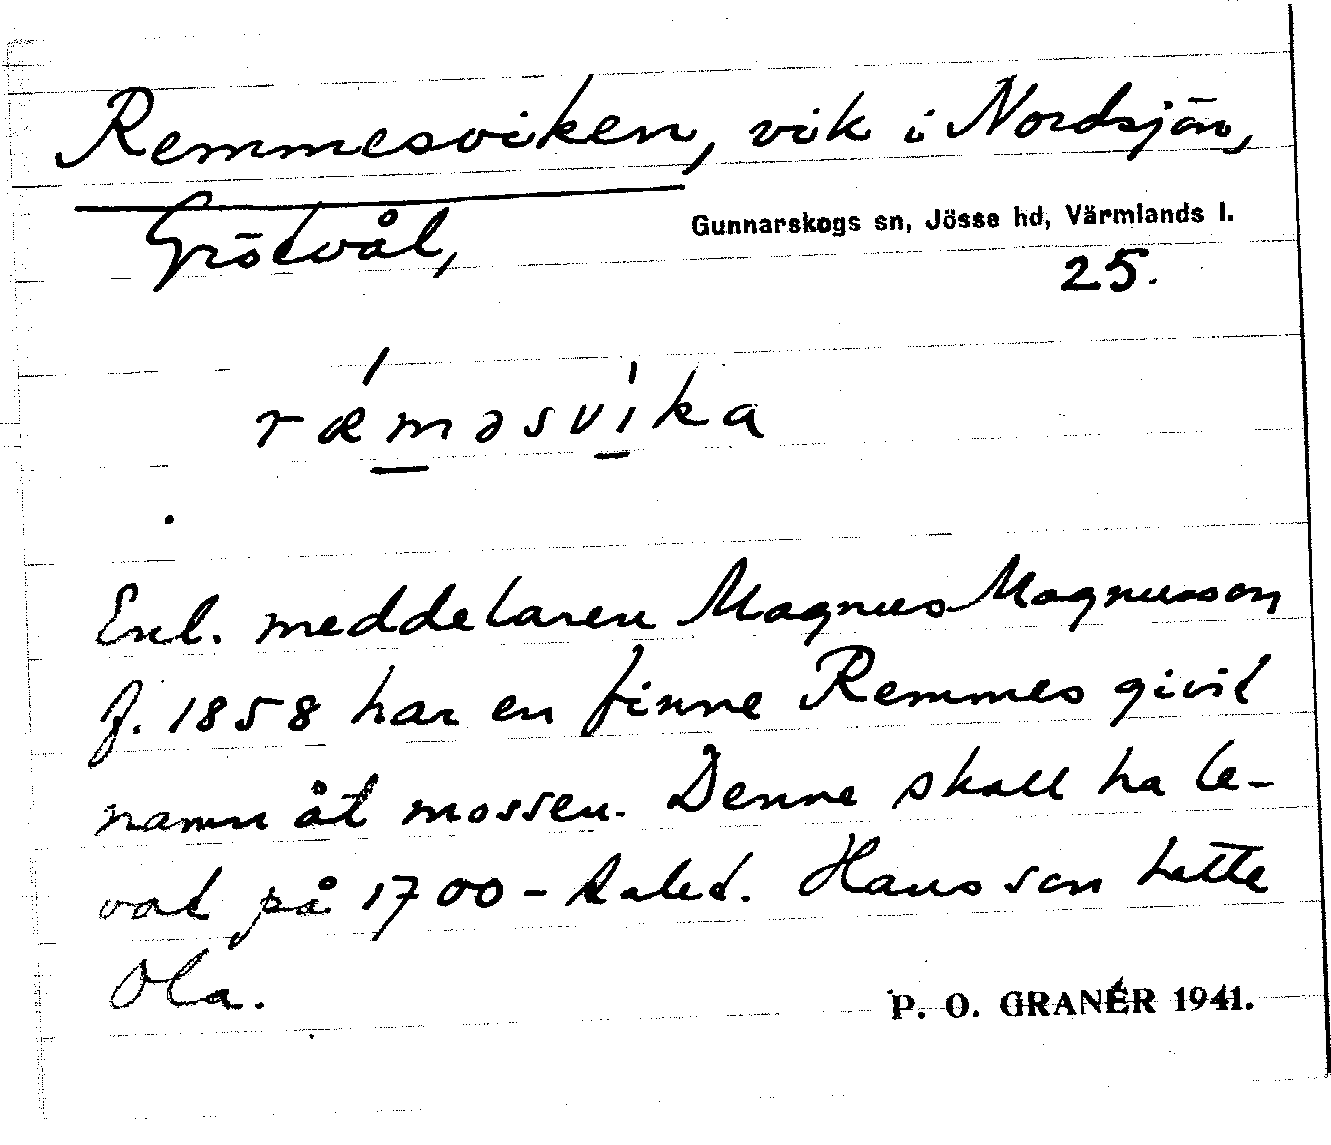 Remmesviken, vik i Nordsjön,
Grötvål,
Gunnarskogs sn, Jösse hd, Värmlands l.
25.
ræ´m̲əsvi̲´ka
Enl. meddelaren Magnus Magnusson
f. 1858 har en finne Remmes givit
namn åt mossen. Denne skall ha le-
vat på 1700-talet. Hans son hette
Ola.
P. O. GRANÉR 1941.